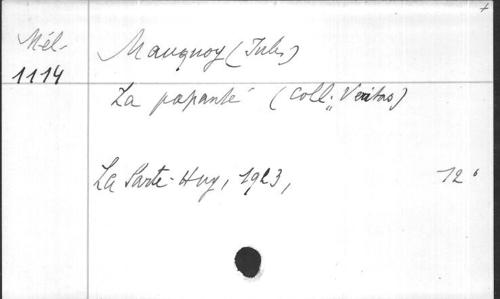 Mél-
1114
Mauquoy (Jules)
La papauté (Coll. "Veritas)
La Sarte-Huy, 1923,
12°